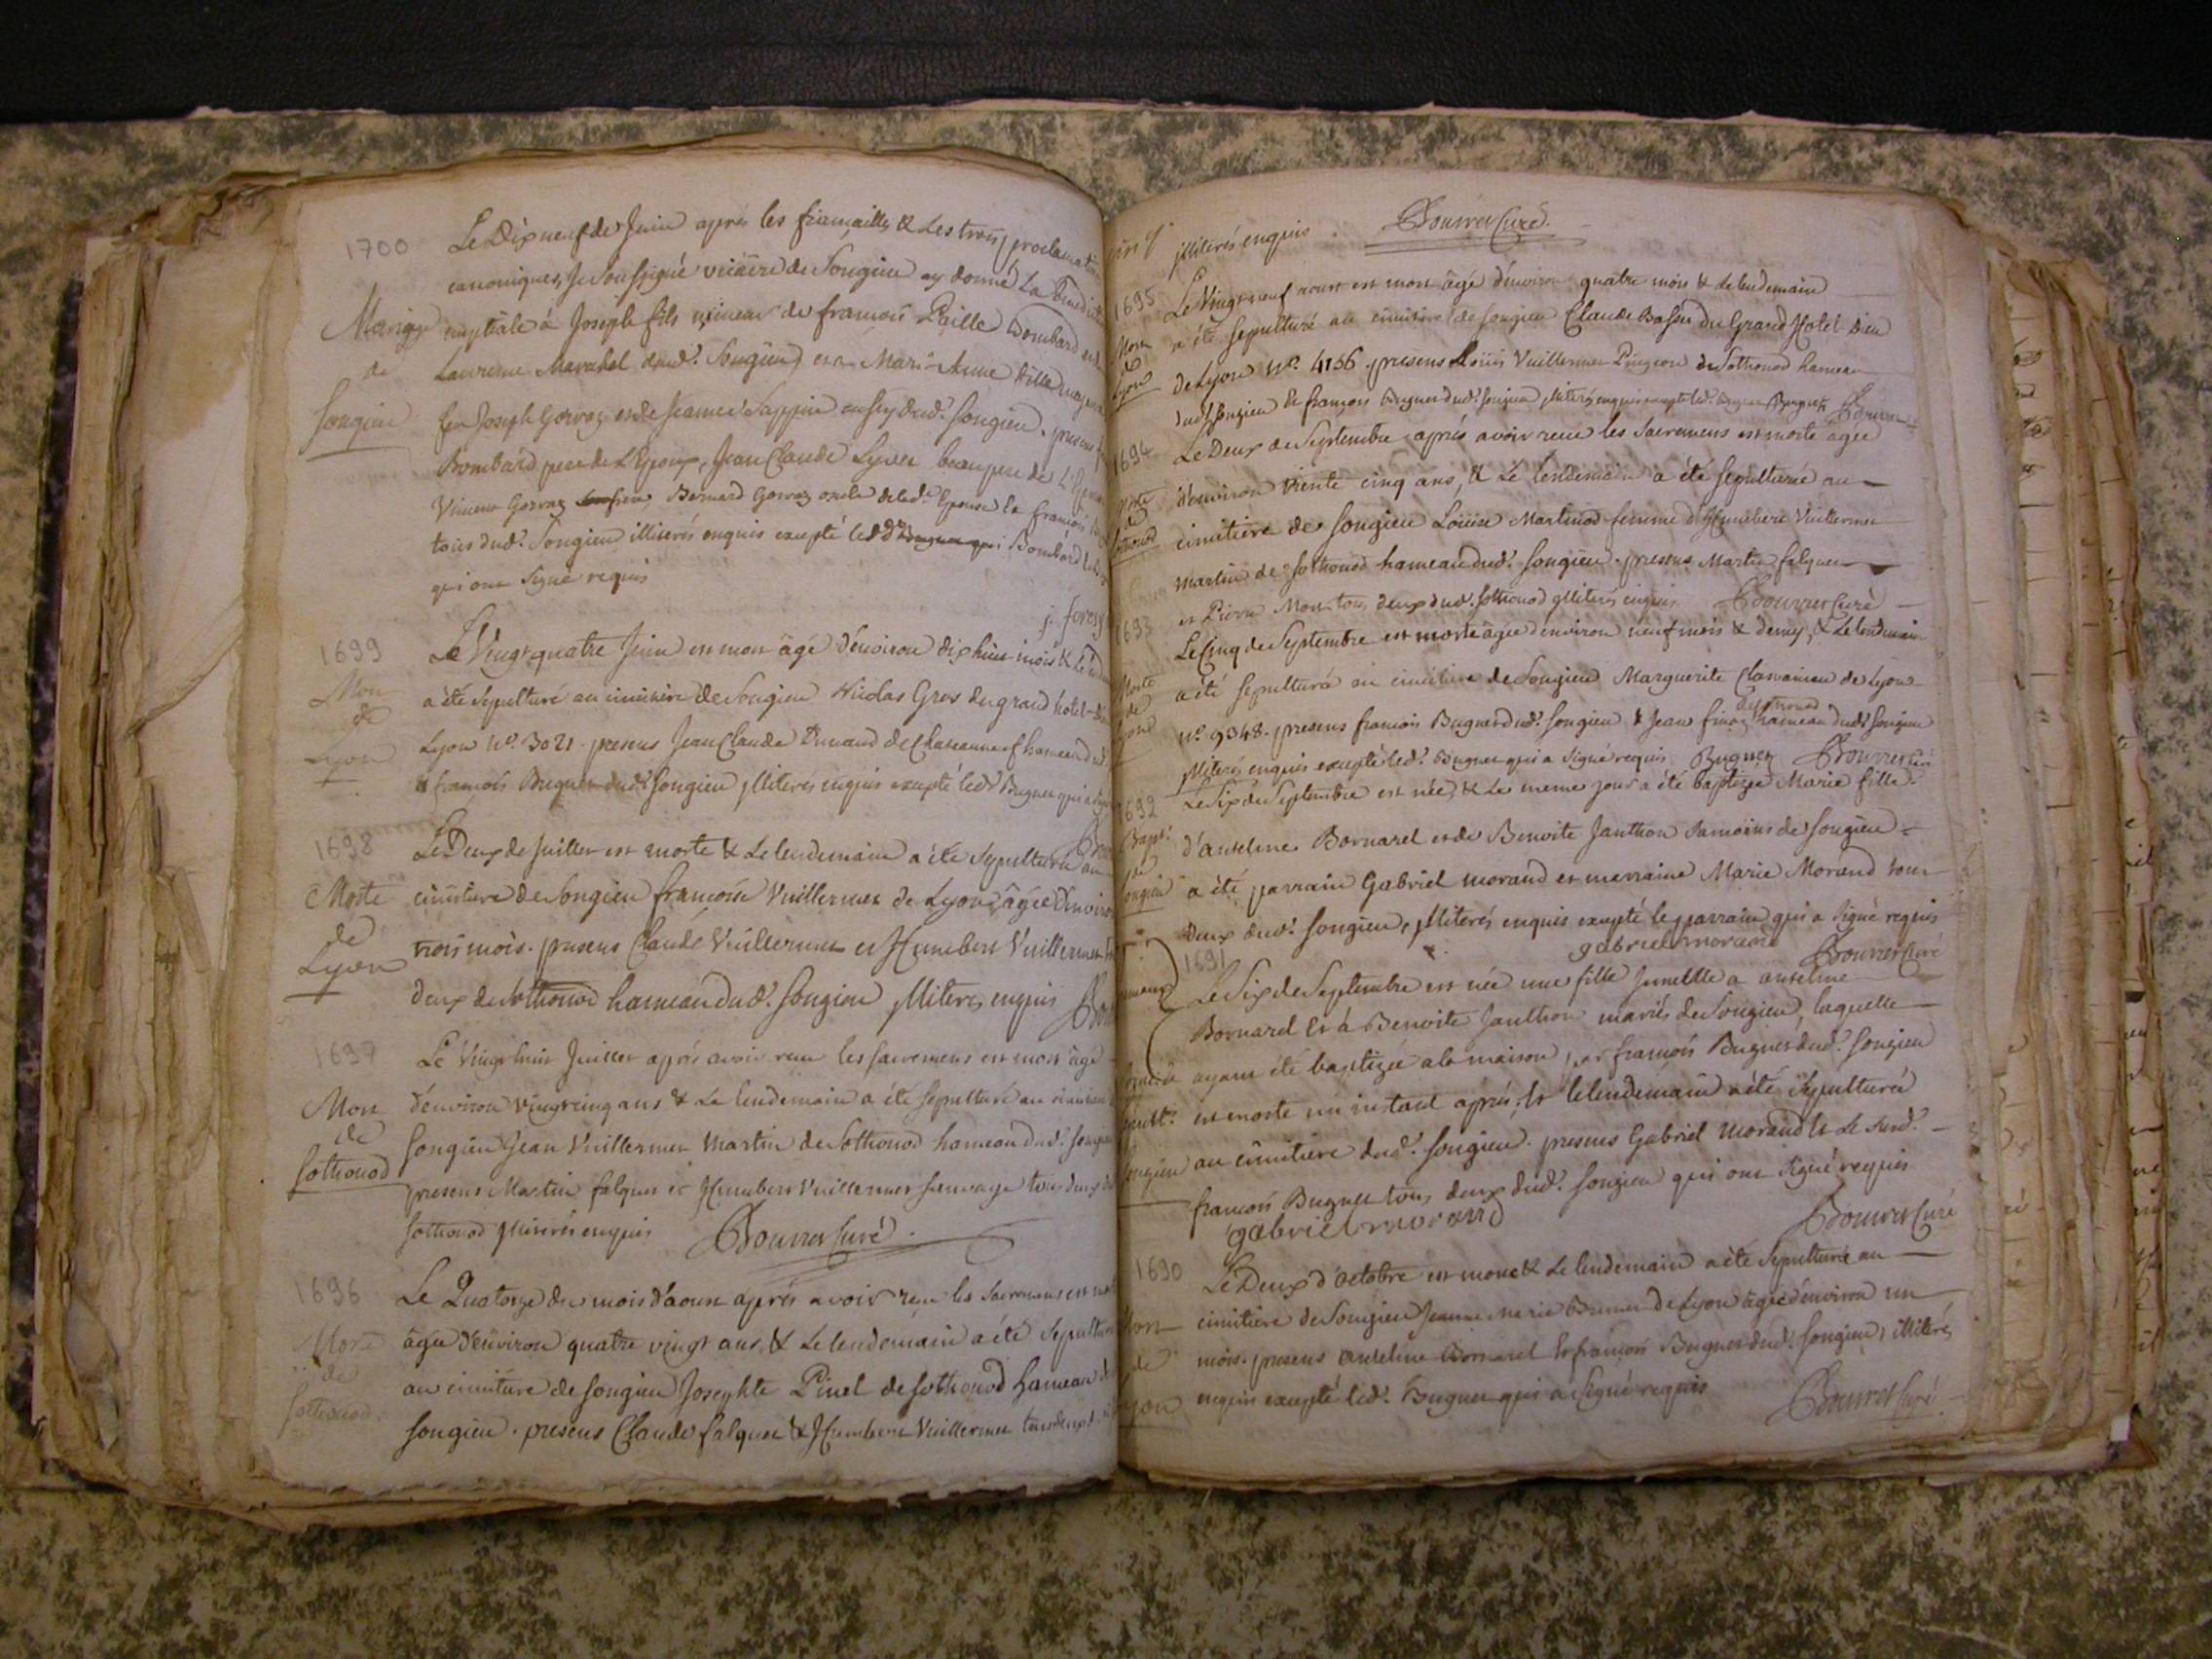 1700 Le Dix neuf de Juin aprés les fiancailles & les trois proclamations
canoniques, Je soussigné vicaire de Songieu ay donné La
Mariage nuptiale á Joseph fils mineur de francois Paille Bombard et de
de Laurence Marabel dud.t Songieu et a Marie Anne fille
Songieu feu Joseph Gorraz et de Jeanne aussy dud.t Songieu. presens
Bombard pere de L'Epoux, Jean Claude Lyvet beaupere de
Vincent Gorraz Bernard Gorraz oncle de lad.e Epouse et francois
tous dud.t Songieu illiterés enquis excepté Bombard
qui ont signé requis
1699 Le Vingt quatre Juin est mort âgé d'environ dix huit mois &
Mort a été sepulturé au cimitiere de Songieu Nicolas Gros du grand hôtel-
de
Lyon Lyon N.o 3021. presens Jean Claude Durand de Chateauneuf hameau
& francois Buguet dud.t Songieu illiterés enquis excepté led.t Buguet qui a
1698 Le Deux de Juillet est morte & Le lendemain a été sepulturée au
Morte cimitiere de Songieu francoise Vuillermet de Lyon âgée d'environ
de
Lyon trois mois. presens Claude Vuillermet et Humbert Vuillermet
deux de Sothonod hameau dud.t Songieu illiterés enquis
1697 Le Vingt huit Juillet aprés avoir recu les sacremens est mort âgé
Mort d'environ vingt cinq ans & Le lendemain a été sepulturé au
de
Sothonod Songieu Jean Vuillermet Martin de Sothonod hameau dud.t
presens Martin falquet et Humbert Vuillermet sauvage tous deux
Sothonod illiterés enquis Bourret Curé.
1696 Le Quatorze du mois d'aoust aprés avoir recu les sacremens est
Morte âgée d'environ quatre vingt ans, & Le lendemain a été sepulturée
de
Sothonod au cimitiere de Songieu Josephte Pinel de Sothonod hameau
Songieu. presens Claude falquet & Humbert Vuillermet tous deux
illiterés enquis. Bourret Curé.
1695 Le Vingt neuf aoust est mort âgé d'environ quatre mois & Le lendemain
Mort a été sepulturé au cimitiere de Songieu Claude du Grand Hotel Dieu
de
Lyon de Lyon N.o 4156. presens Loüis Vuillermet Pingeon de Sothonod hameau
dud.t Songieu & francois Buguet dud.t Songieu illiterés enquis excepté led.t Buguet Buguet Bourret
1694 Le Deux de Septembre aprés avoir recu les Sacremens est morte âgée
Morte d'environ trente cinq ans, & Le lendemain a été sepulturée au
de
Sothonod cimitiere de Songieu Loüise Martinod femme d'Humbert Vuillermet
martin de Sothonod hameau dud.t Songieu. presens Martin falquet
et Pierre tous deux dud.t Sothonod illiterés enquis. Bourret Curé
1693 Le Cinq de Septembre est morte âgée d'environ neuf mois & demy, & Le lendemain
Morte a été sepulturée au cimitiere de Songieu Marguerite de Lyon
de
Lyon N.o 9348. presens francois Buguet dud.t Songieu & Jean de Sothonod hameau dud.t Songieu
illiterés enquis excepté led.t Buguet qui a signé requis Buguet Bourret Curé
1692 Le Six de Septembre est née, & Le meme jour a été baptizée Marie fille
Bapt.e d'anselme Bornarel et de Benoite Janthon de Songieu
de
Songieu a été parrain Gabriel morand et marraine Marie Morand tous
deux dud.t Songieu, illiterés enquis excepté le parrain qui a signé requis
gabriel morand Bourret Curé
1691 Le Six de Septembre est née une fille Jumelle a anselme
Bornarel et á Benoite Janthon mariés de Songieu, laquelle
ayant été baptizée a la maison par francois Buguet dud.t Songieu
est morte un instant aprés, et le lendemain a été sepulturée
Songieu au cimitiere dud.t Songieu. presens Gabriel morand et Le susd.t
francois Buguet tous deux dud.t Songieu qui ont signé requis
gabriel morand Bourret Curé
1690 Le Deux d'octobre est morte & Le lendemain a été sepulturée au
Morte cimitiere de Songieu Jeanne Marie de Lyon âgée d'environ un
de mois. presens anselme Bornarel & francois Buguet dud.t Songieu, illiterés
Lyon enquis excepté led.t Buguet qui a signé requis Bourret Curé